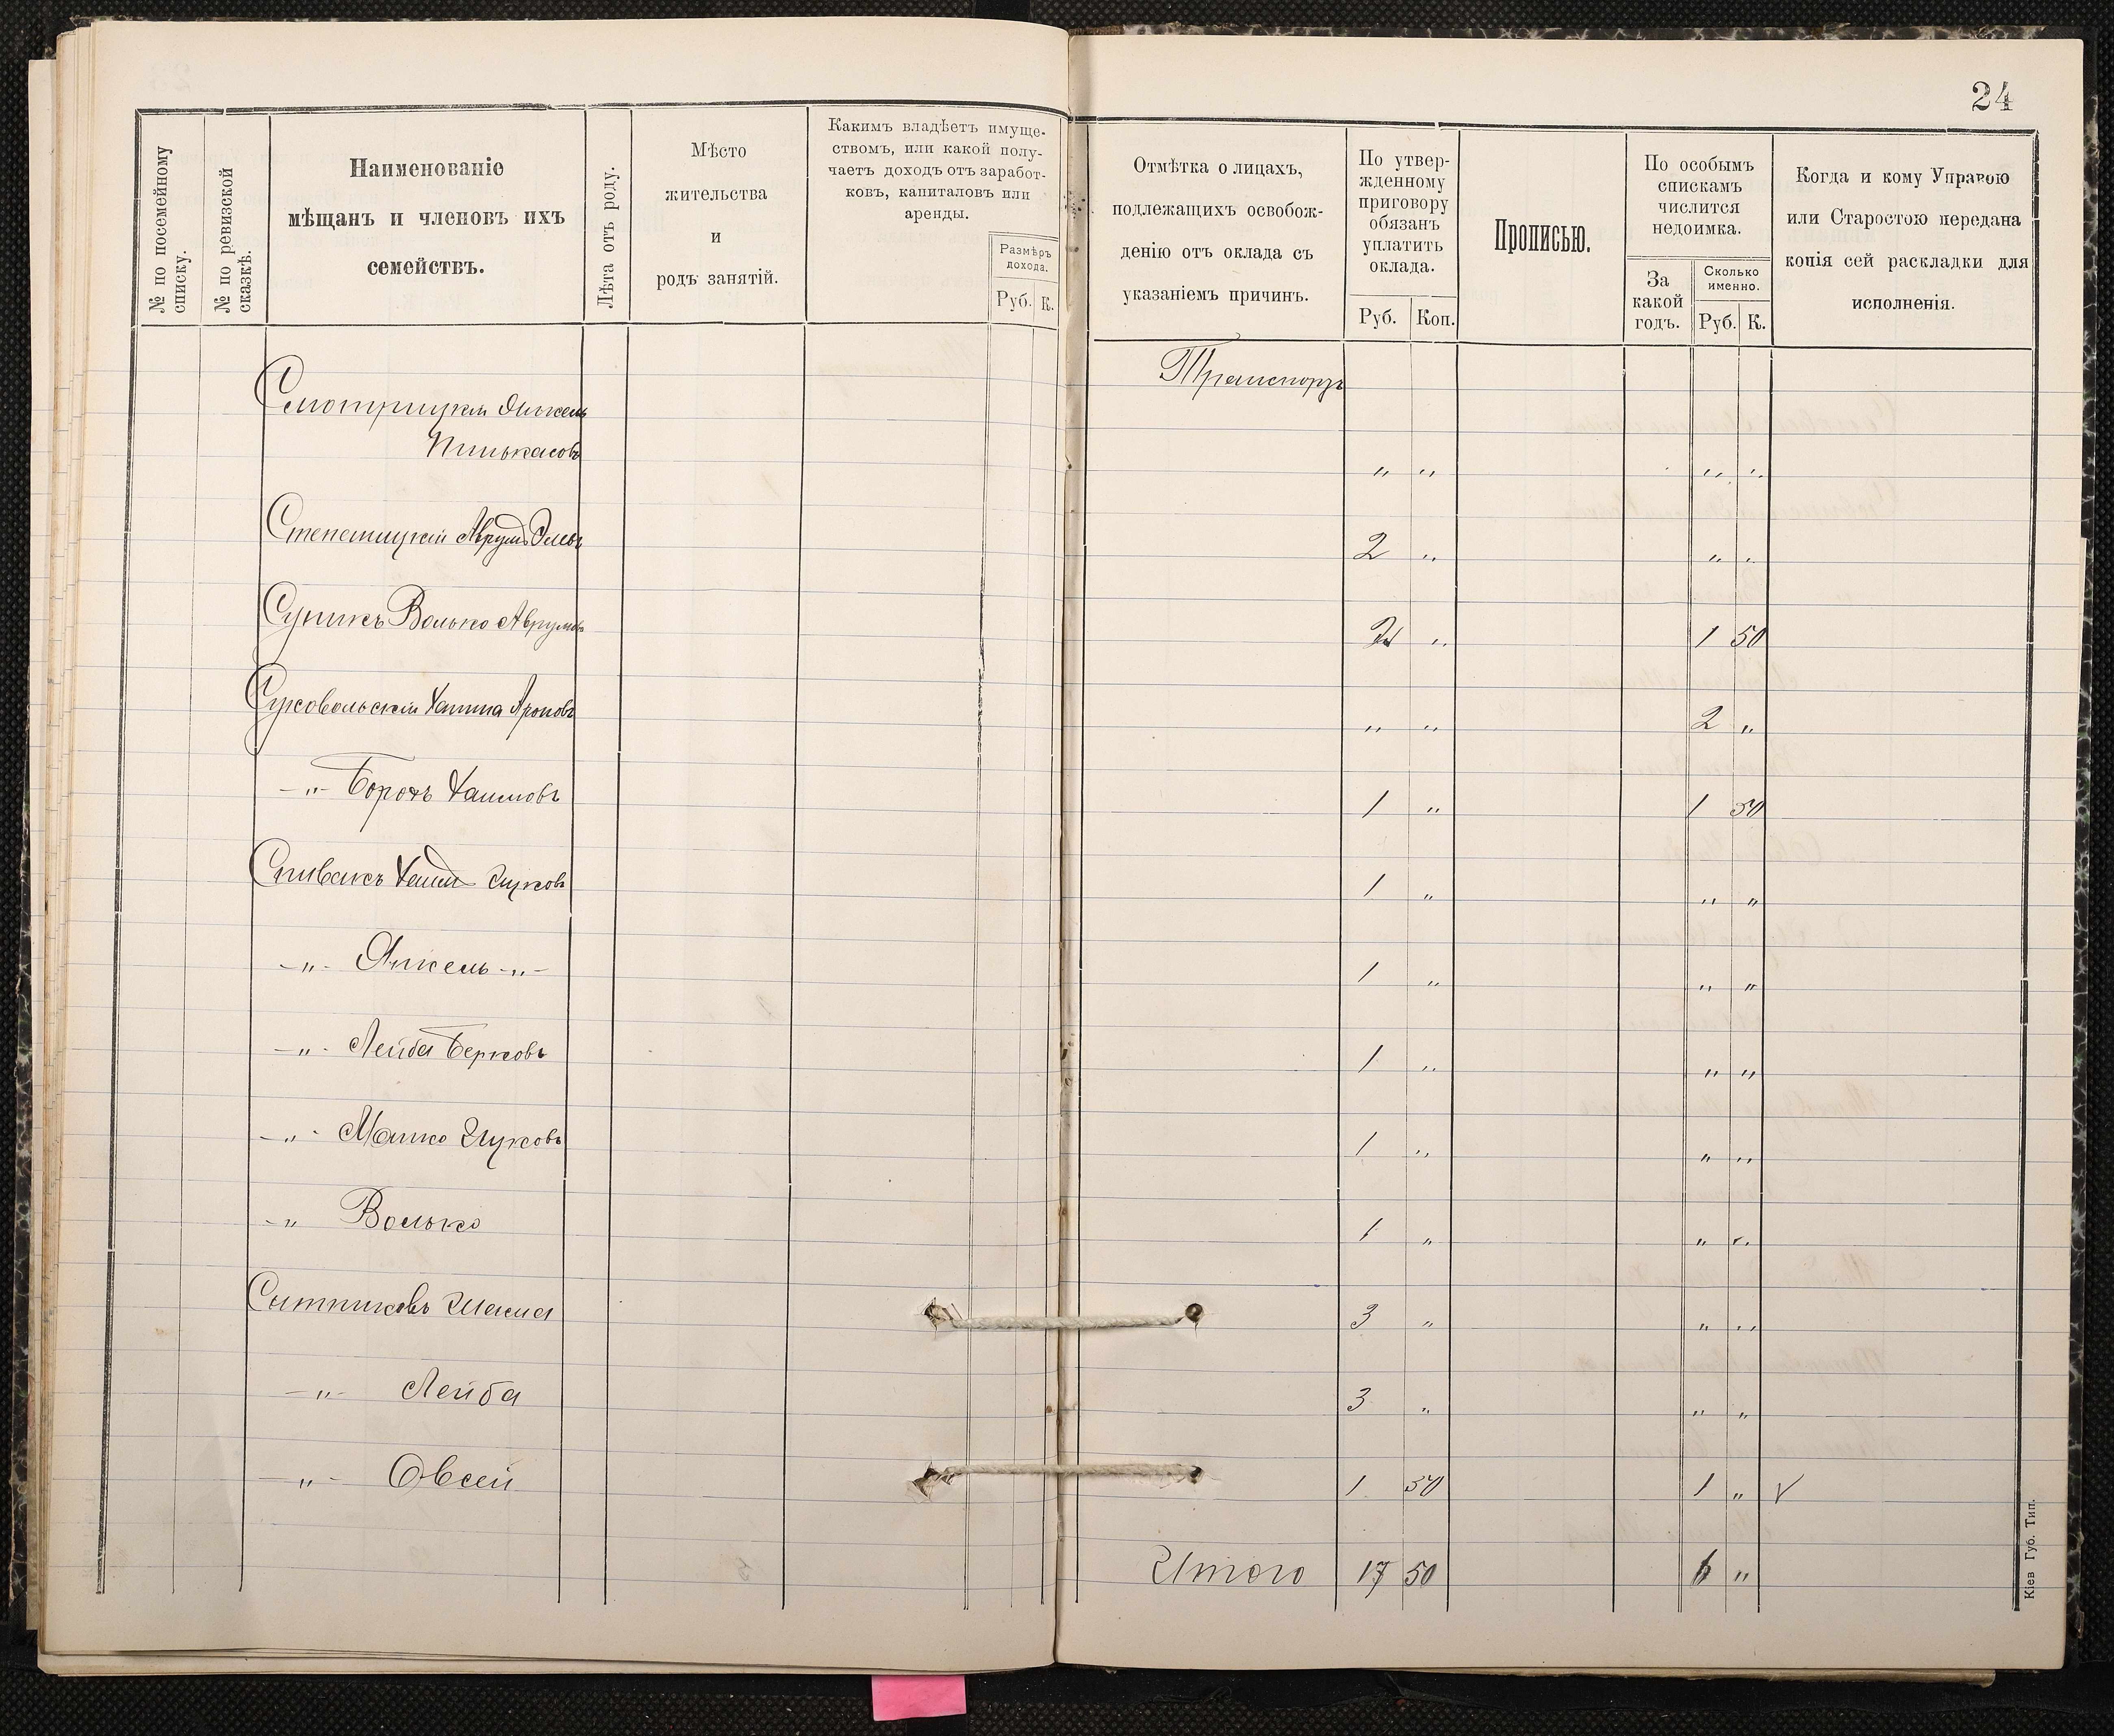 24
№ по посемейному списку.
№ по ревизской сказкѣ.
Наименованіе
мѣщанъ и членовъ ихъ
семействъ.
Лѣта отъ роду.
Мѣсто
жительства
и
родъ занятій.
Какимъ владѣетъ имуще-
ствомъ, или какой полу-
чаетъ доходъ отъ заработ-
ковъ, капиталовъ или
аренды.
Размѣръ
дохода.
Руб. К.
Отмѣтка о лицахъ,
подлежащихъ освобож-
денію отъ оклада съ
указаніемъ причинъ.
По утвер-
жденному
приговору
обязанъ
уплатить
оклада.
Руб. Коп.
Прописью.
По особымъ
спискамъ
числится
недоимка.
За
какой
годъ.
Сколько
именно.
Руб. К.
Когда и кому Управою
или Старостою передана
копія сей раскладки для
исполненія.
Транспортъ
Смотрицкій Янкель
Пинькасовъ " " " "
Степашицкій Аврумъ 2 " " "
Суникъ Волько Аврумовъ " 1 50
Суховольскій Хаима Ароновъ " " 2 "
-"- Борохъ Хаимовъ 1 " 1 50
Спивакъ Хаимъ Ицковъ 1 " " "
-"- Янкель -"- 1 " " "
-"- Лейба Берковъ 1 " " "
-"- Мошко Ицковъ 1 " " "
-" Волько 1 " " "
Сытниковъ Шама 3 " " "
-"- Лейба 3 " " "
-"- Овсей 1 50 1 "
Итого 17 50 6 "
Кіев Губ. Тип.